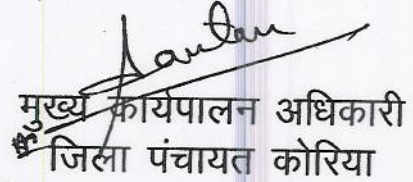 मुख्य कार्यपालन अधिकारी
जिला पंचायत कोरिया